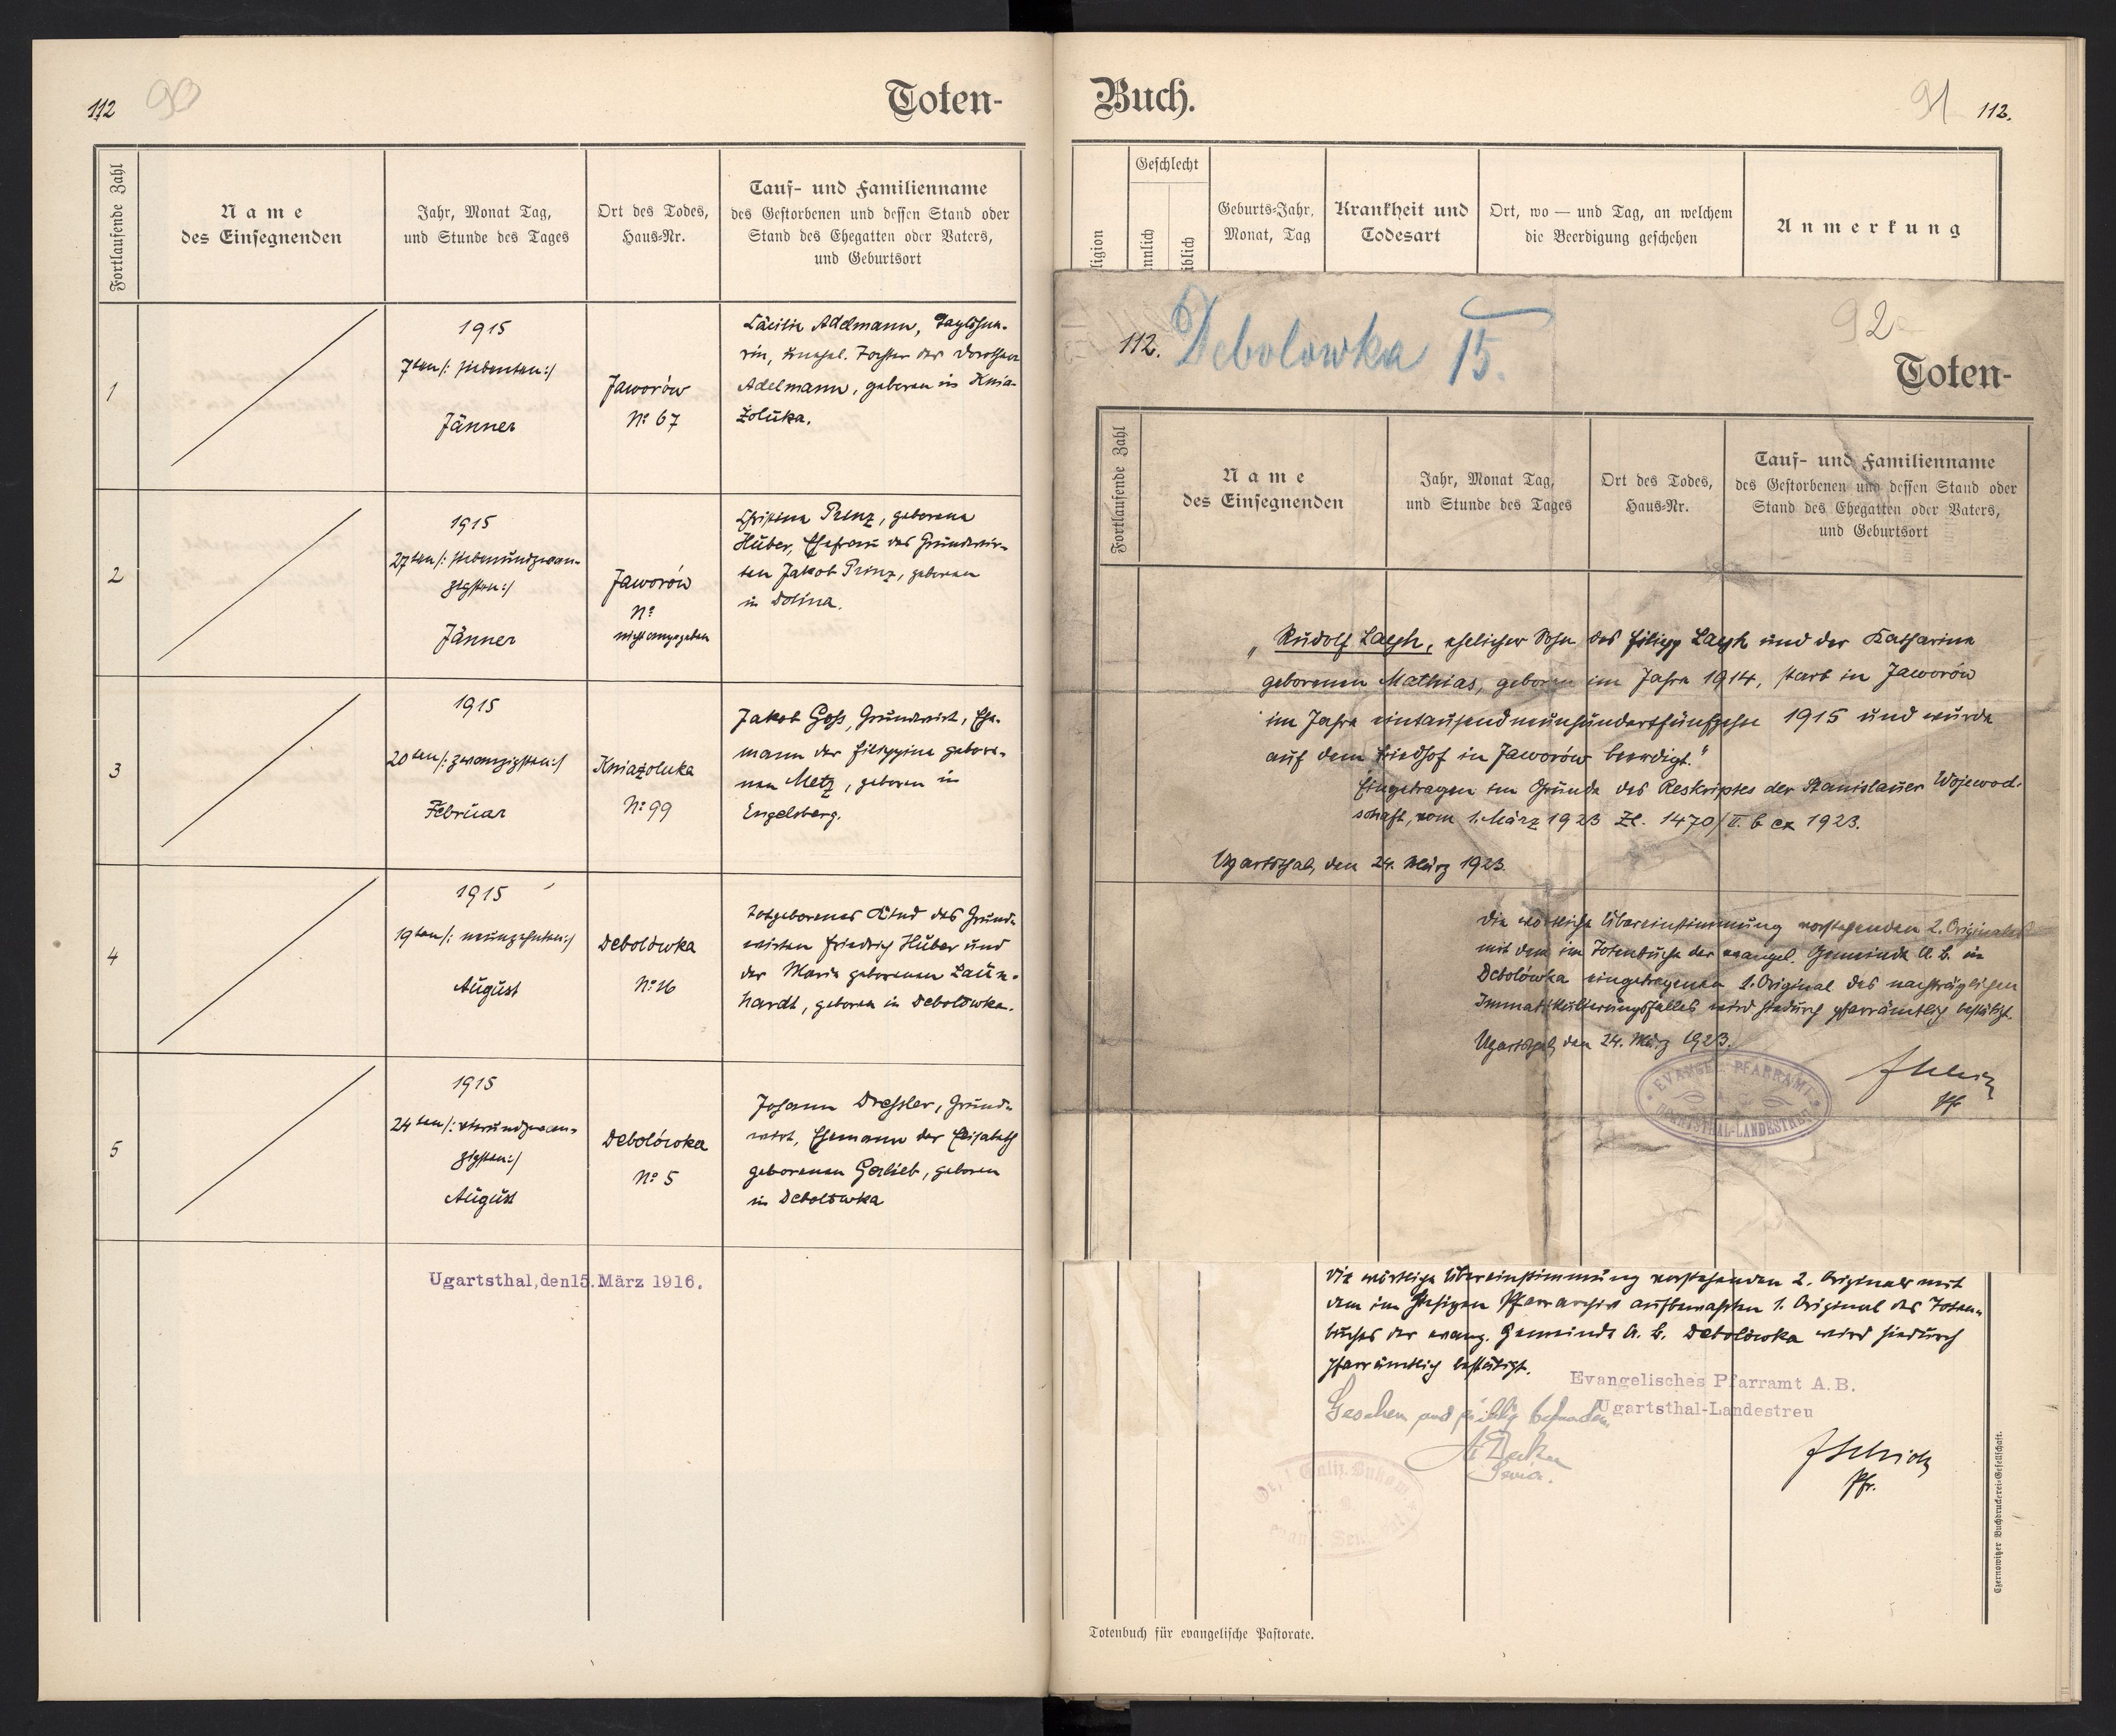 112 90
Toten-
Fortlaufende Zahl
Name
des Einsegnenden
Jahr, Monat Tag,
und Stunde des Tages
Ort des Todes,
Haus-Nr.
Tauf- und Familienname
des Gestorbenen und dessen Stand oder
Stand des Ehegatten oder Vaters,
und Geburtsort
1
1915
7ten/: siebenten:/
Jänner
Jaworów
No 67
Cäcilie Adelmann, Taglöhne-
rin, unehel. Tochter der Dorothea
Adelmann, geboren in Knia-
żoluka.
2
1915
27ten/: siebenundzwan-
zigsten:/
Jänner
Jaworów
No
nicht angegeben
Christina Prinz, geborene
Huber, Ehefrau des Grundwir-
ten Jakob Prinz, geboren
in Dolina.
3
1915
20ten/: zwanzigsten:/
Februar
Kniażoluka
No 99
Jakob Goß, Grundwirt, Ehe-
mann der Filippine gebore-
nen Metz, geboren in
Engelsberg.
4
1915
19ten/: neunzehnten:/
August
Debolówka
No 16
Totgeborenes Kind des Grund-
wirten Friedrich Huber und
der Maria geborenen Laun-
hardt, geboren in Debolówka.
5
1915
24ten/: vierundzwan-
zigsten:/
August
Debolówka
No 5
Johann Dreßler, Grund-
wirt, Ehemann der Elisabeth
geborenen Gerlieb, geboren
in Debolówka
Ugartsthal, den 15. März 1916.
Buch.
91 112.
ligion
Geschlecht
nnlich
iblich
Geburts-Jahr,
Monat, Tag
Krankheit und
Todesart
Ort, wo — und Tag, an welchem
die Beerdigung geschehen
Anmerkung
112. Debolowka 15.
92
Toten-
Fortlaufende Zahl
Name
des Einsegnenden
Jahr, Monat Tag,
und Stunde des Tages
Ort des Todes,
Haus-Nr.
Tauf- und Familienname
des Gestorbenen und dessen Stand oder
Stand des Ehegatten oder Vaters,
und Geburtsort
„Rudolf ehelicher Sohn des Filipp und der Katharina
geborenen Mathias, geboren im Jahre 1914, starb in Jaworów
im Jahre eintausendneunhundertfünfzehn 1915 und wurde
auf dem Friedhof in Jaworów beerdigt."
Eingetragen im Grunde des Reskriptes der Stanislauer Wojewod-
schaft, vom 1. März 1923 Zl. 1470/II. b ex 1923.
Ugartsthal, den 24. März 1923.
Die wörtliche Übereinstimmung vorstehenden 2. Originales
mit dem im Totenbuche der evangel. Gemeinde A. B. in
Debolówka eingetragenen 1. Original des nachträglichen
Immatrikulierungsfalles wird hiedurch pfarrämtlich bestätigt.
Ugartsthal, den 24. März 1923.
EVANGEL. PFARRAMT
UGARTSTHAL-LANDESTREU
Pfr
Die wörtliche Übereinstimmung vorstehenden 2. Originals mit
dem im hiesigen Pfarrarchiv aufbewahrten 1. Original des Toten-
buches der evang. Gemeinde A. B. Debolówka wird hiedurch
pfarrämtlich bestätigt.
Evangelisches Pfarramt A.B.
Ugartsthal-Landestreu
Gesehen und richtig befunden
Senior.
Pfr.
Czernowitzer Buchdruckerei-Gesellschaft.
Totenbuch für evangelische Pastorate.